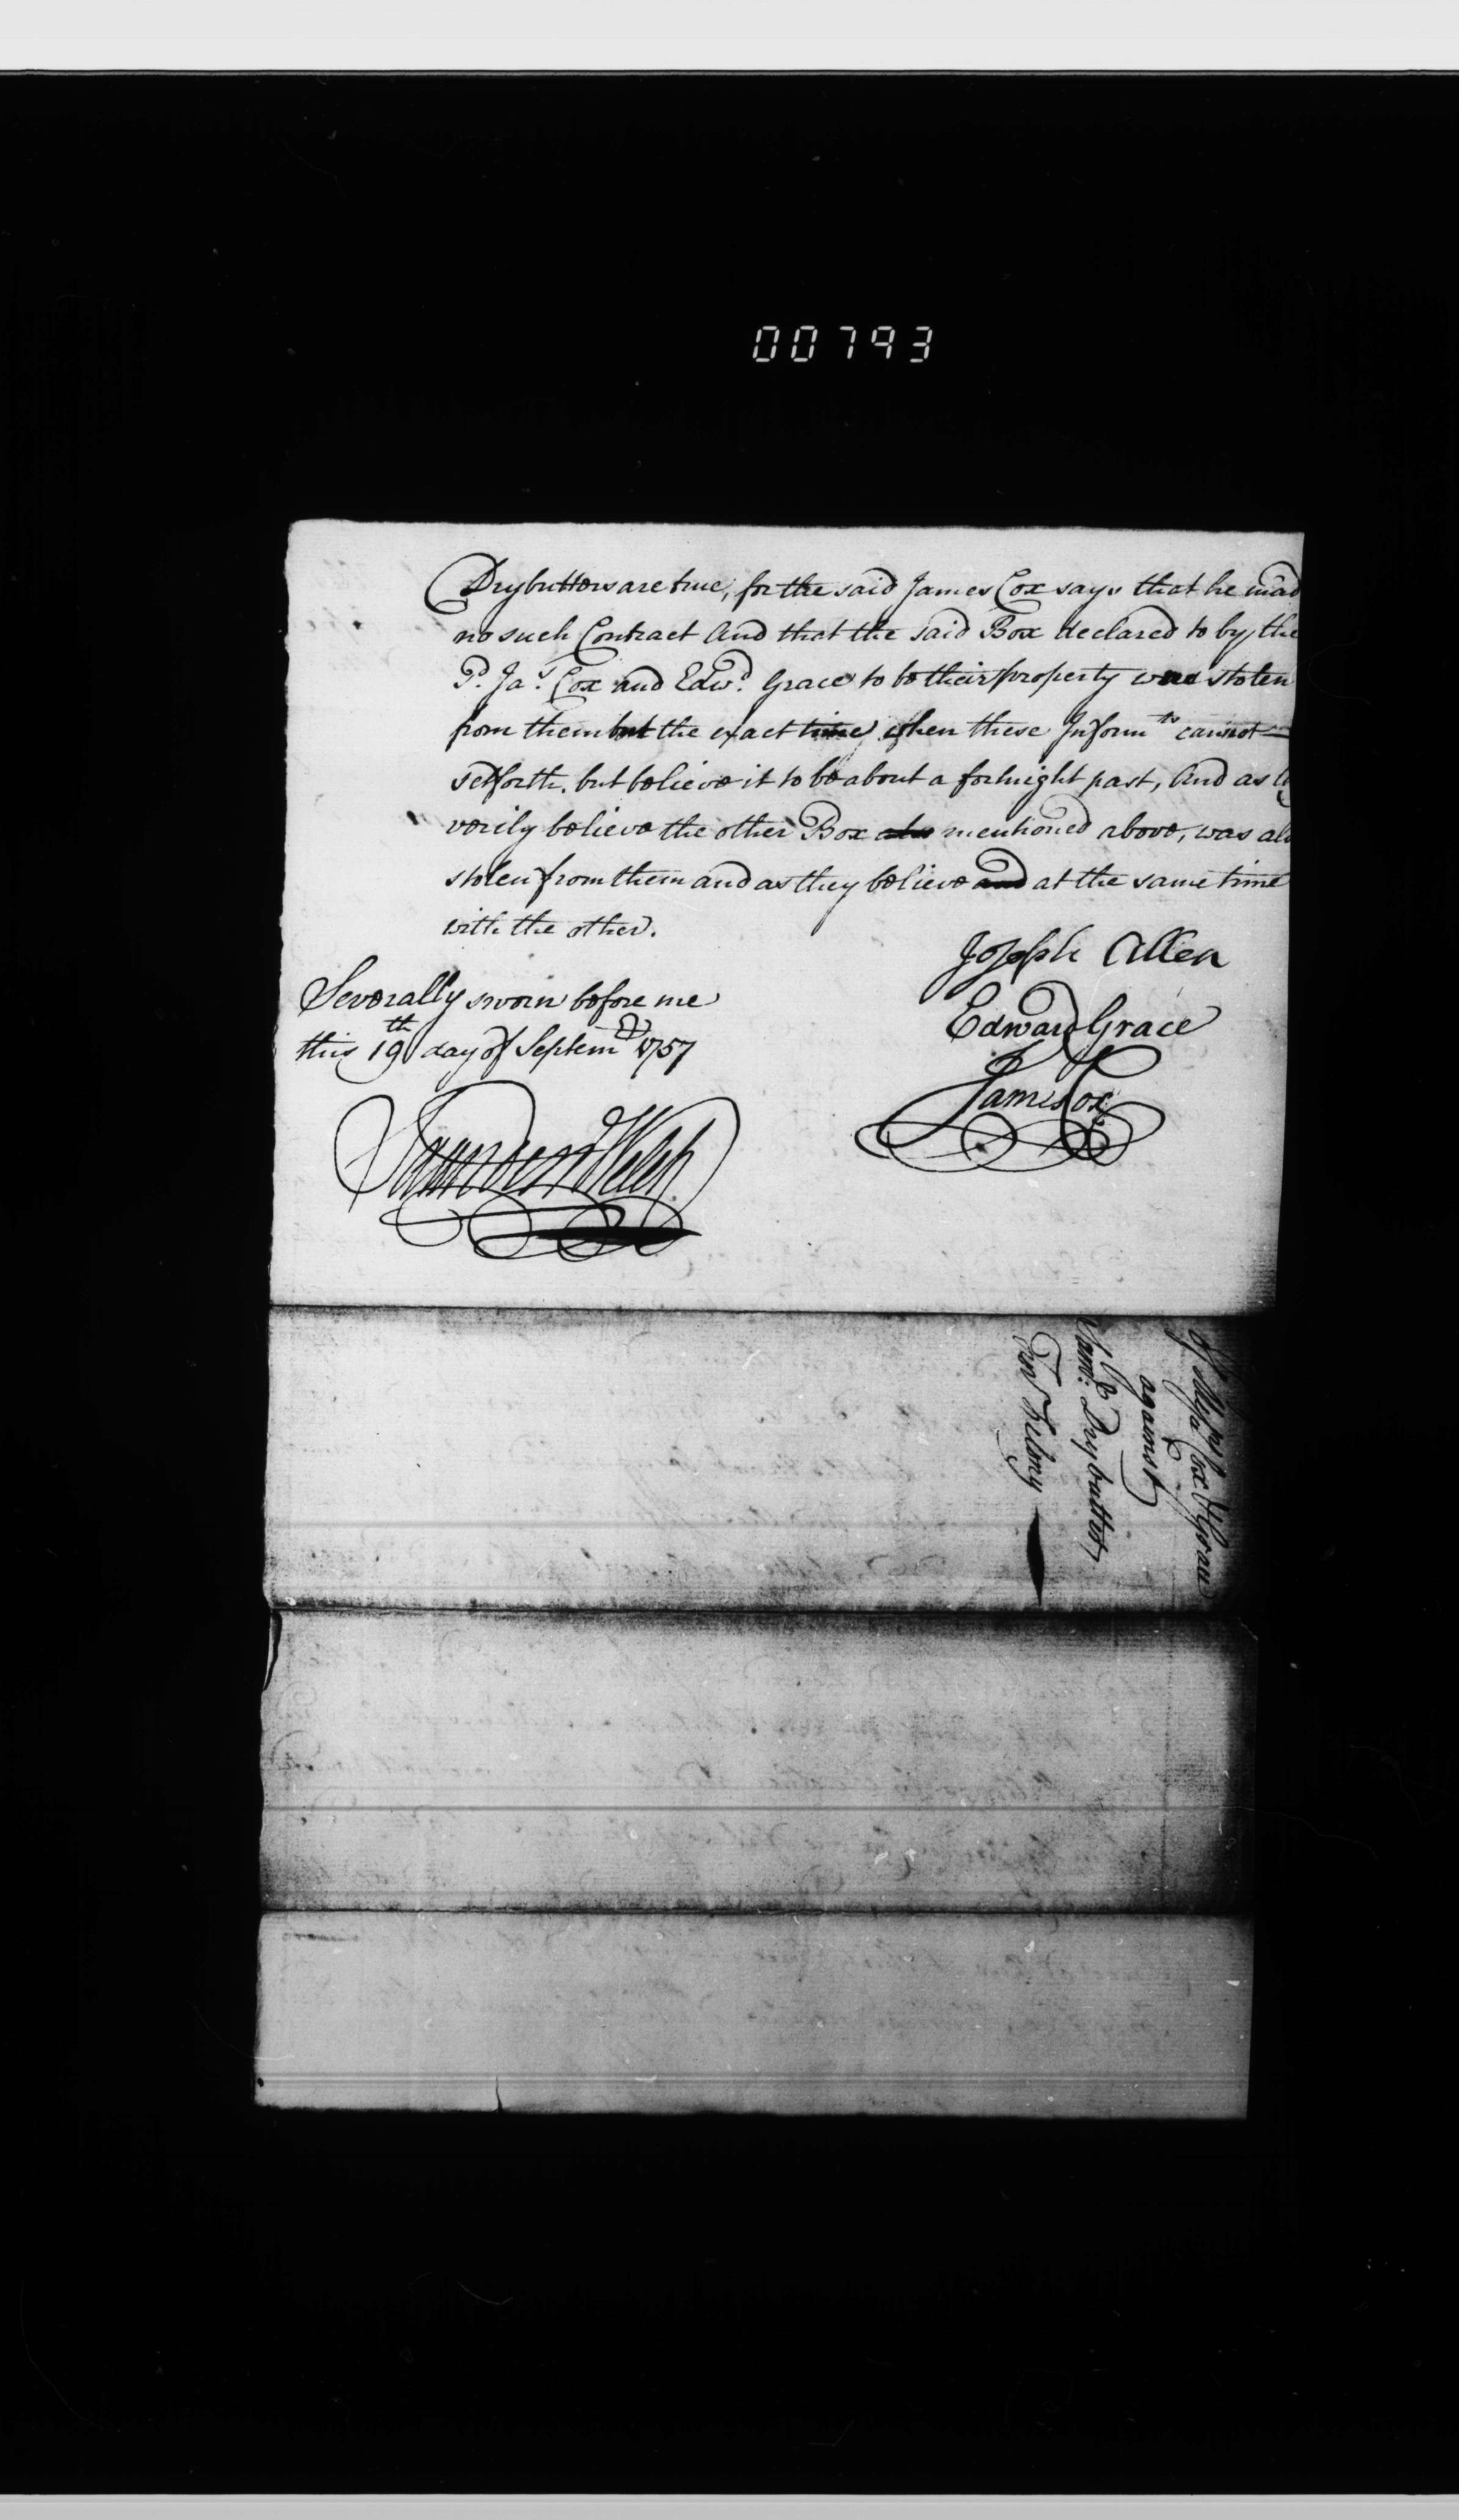 00793
Drybutters are true, for the said James Cox says that he mad
no such Contract And that the said Box declared to by the
Sd. Jas. Cox and Edwd. Grace to be their property was stolen
from them but the exact time when these Informts cannot
setforth. but believe it to be about a fortnight past, And as
verily believe the other Box also mentioned above, was als
stolen from them and as they believe and at the same time
with the other.
Joseph Allen
Severally sworn before me
Edward Grace
this 19th day of Septemr 1757
James Cox
Saunders Welch
of Cox & Grace
against
Saml. Drybutter,
For Felony